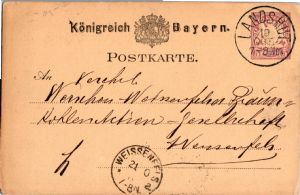 Königreich Bayern.
POSTKARTE.
An
Werschen-Weissenfelser Braun-
kohlen Actien-Gesellschaft
Weissenfels
LANDSHUT
WEISSENFELS